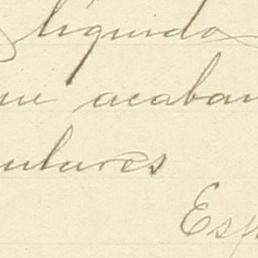 líquido
que acaban
ulares
Esp